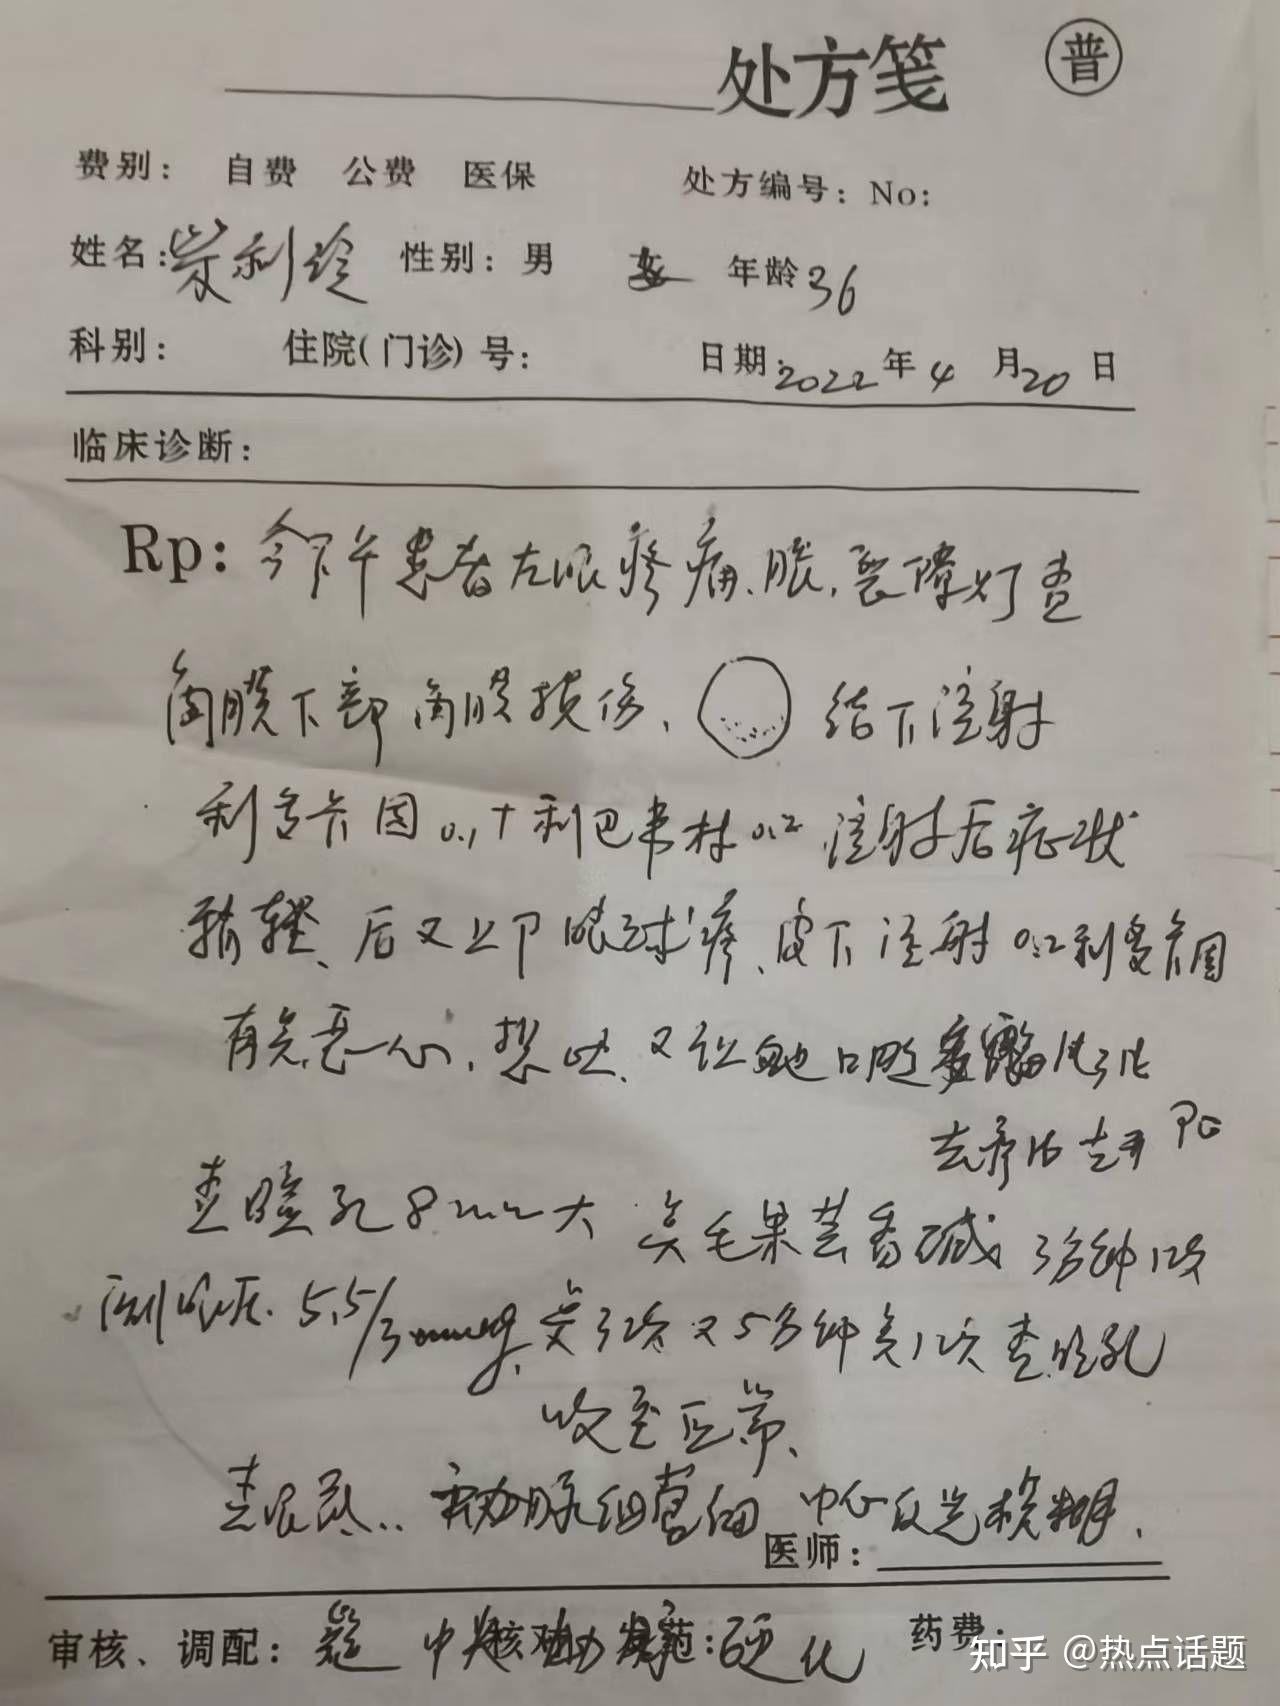 处方笺 普
费别: 自费 公费 医保 处方编号: No:
姓名: 柴利玲 性别: 男 女 年龄 36
科别: 住院(门诊)号: 日期: 2022年4月20日
临床诊断:
Rp: 今下午患者左眼疼痛、胀,裂隙灯查
角膜下部角膜损伤, 结下注射
利多卡因0.1+利巴韦林0.2 注射后症状
稍轻、后又上下眼球疼、皮下注射0.2利多卡因
有点恶心,想吐,又让她口服
查瞳孔8mm大 点毛果芸香碱 3分钟1次
测眼压. 5.5/3mmHg, 点3次又5分钟点1次查瞳孔
收至正常、
查眼底.. 动脉细 中心反光模糊.
医师:
审核、调配: 核对 发药: 硬化 药费:
知乎 @热点话题